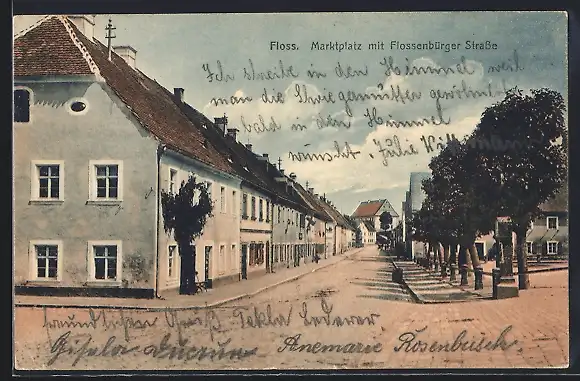 Floss. Marktplatz mit Flossenbürger Straße
Ich streike in den Himmel weil
man die Schwiegermütter gewöhnlich
bald in den Himmel
wünscht. Julie Wittmann
freundlichen Gruß Tekla Lederer.
Gisela
Annemarie Rosenbusch.